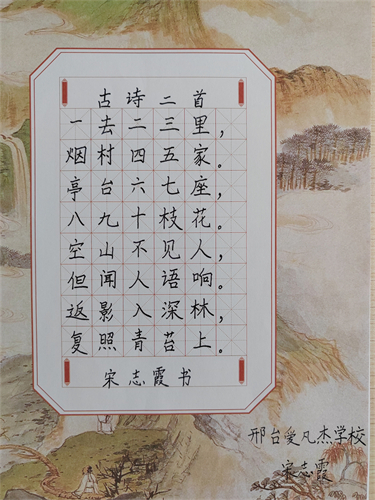 古诗二首
一去二三里，
烟村四五家。
亭台六七座，
八九十枝花。
空山不见人，
但闻人语响。
返影入深林，
复照青苔上。
宋志霞书
邢台爱凡杰学校
宋志霞